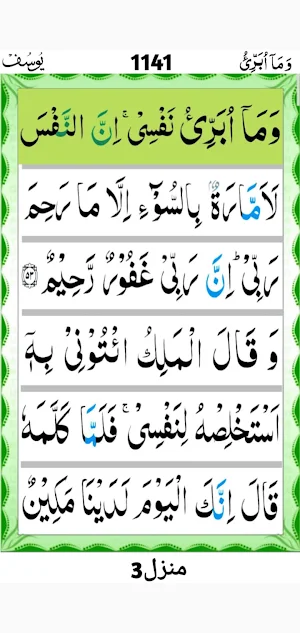 وَمَاۤ اُبَرِّئُ 1141 يُوسُف
وَمَاۤ اُبَرِّئُ نَفْسِىْ ۚ اِنَّ النَّفْسَ
لَاَمَّارَةٌۢ بِالسُّوْٓءِ اِلَّا مَا رَحِمَ
رَبِّىْ ؕ اِنَّ رَبِّىْ غَفُوْرٌ رَّحِيْمٌ ﴿۵۳﴾
وَ قَالَ الْمَلِكُ ائْتُوْنِىْ بِهٖۤ
اَسْتَخْلِصْهُ لِنَفْسِىْ ۚ فَلَمَّا كَلَّمَهٗ
قَالَ اِنَّكَ الْيَوْمَ لَدَيْنَا مَكِيْنٌ
منزل3